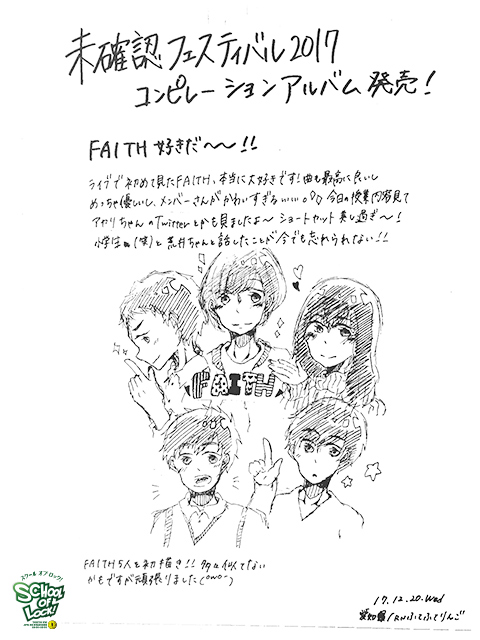 未確認フェスティバル2017
コンピレーションアルバム発売！
FAITH 好きだ〜〜!!
ライブで初めて見たFAITH、本当に大好きです！曲も最高に良いし
めっちゃ優しいし、メンバーさんがかわいすぎるぃぃぃ。今日の授業内容見て
アカリちゃんのTwitterとかも見ましたよ〜ショートカット美し過ぎ〜！
小学生(笑)と荒井ちゃんと話したことが今でも忘れられない!!
FAITH
FAITH5人を初描き!! 似てない
かもですが頑張りました(^ω^)
スクール オブ ロック!
SCHOOL OF LOCK!
17.12.20.Wed
愛知県/RNふてふてりんご